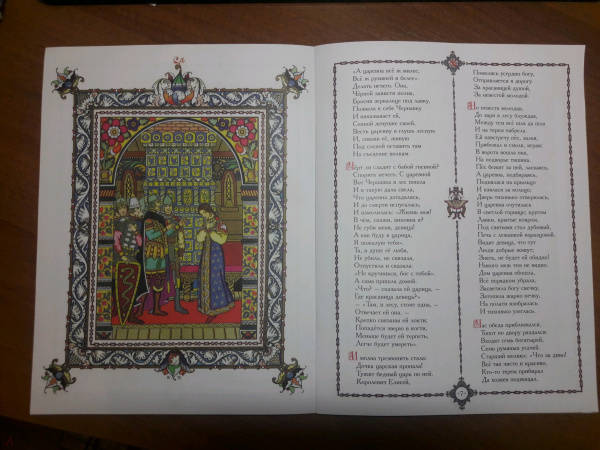 «А царевна всё ж милее,
Всё ж румяней и белее».
Делать нечего. Она,
Чёрной зависти полна,
Бросив зеркальце под лавку,
Позвала к себе Чернавку
И наказывает ей,
Сенной девушке своей,
Весть царевну в глушь лесную
И, связав её, живую
Под сосной оставить там
На съедение волкам.
Чёрт ли сладит с бабой гневной?
Спорить нечего. С царевной
Вот Чернавка в лес пошла
И в такую даль свела,
Что царевна догадалась,
И до смерти испугалась,
И взмолилась: «Жизнь моя!
В чём, скажи, виновна я?
Не губи меня, девица!
А как буду я царица,
Я пожалую тебя».
Та, в душе её любя,
Не убила, не связала,
Отпустила и сказала:
«Не кручинься, бог с тобой».
А сама пришла домой.
«Что? — сказала ей царица, —
Где красавица девица?»
— «Там, в лесу, стоит одна, —
Отвечает ей она. —
Крепко связаны ей локти;
Попадётся зверю в когти,
Меньше будет ей терпеть,
Легче будет умереть».
И молва трезвонить стала:
Дочка царская пропала!
Тужит бедный царь по ней.
Королевич Елисей,
Помолясь усердно богу,
Отправляется в дорогу
За красавицей душой,
За невестой молодой.
Но невеста молодая,
До зари в лесу блуждая,
Между тем всё шла да шла
И на терем набрела.
Ей навстречу пёс, залая,
Прибежал и смолк, играя;
В ворота вошла она,
На подворье тишина.
Пёс бежит за ней, ласкаясь,
А царевна, подбираясь,
Поднялася на крыльцо
И взялася за кольцо;
Дверь тихонько отворилась,
И царевна очутилась
В светлой горнице; кругом
Лавки, крытые ковром,
Под святыми стол дубовый,
Печь с лежанкой изразцовой.
Видит девица, что тут
Люди добрые живут;
Знать, не будет ей обидно!
Никого меж тем не видно.
Дом царевна обошла,
Всё порядком убрала,
Засветила богу свечку,
Затопила жарко печку,
На полати взобралась
И тихонько улеглась.
Час обеда приближался,
Топот по двору раздался:
Входят семь богатырей,
Семь румяных усачей.
Старший молвил: «Что за диво!
Всё так чисто и красиво.
Кто-то терем прибирал
Да хозяев поджидал.
7